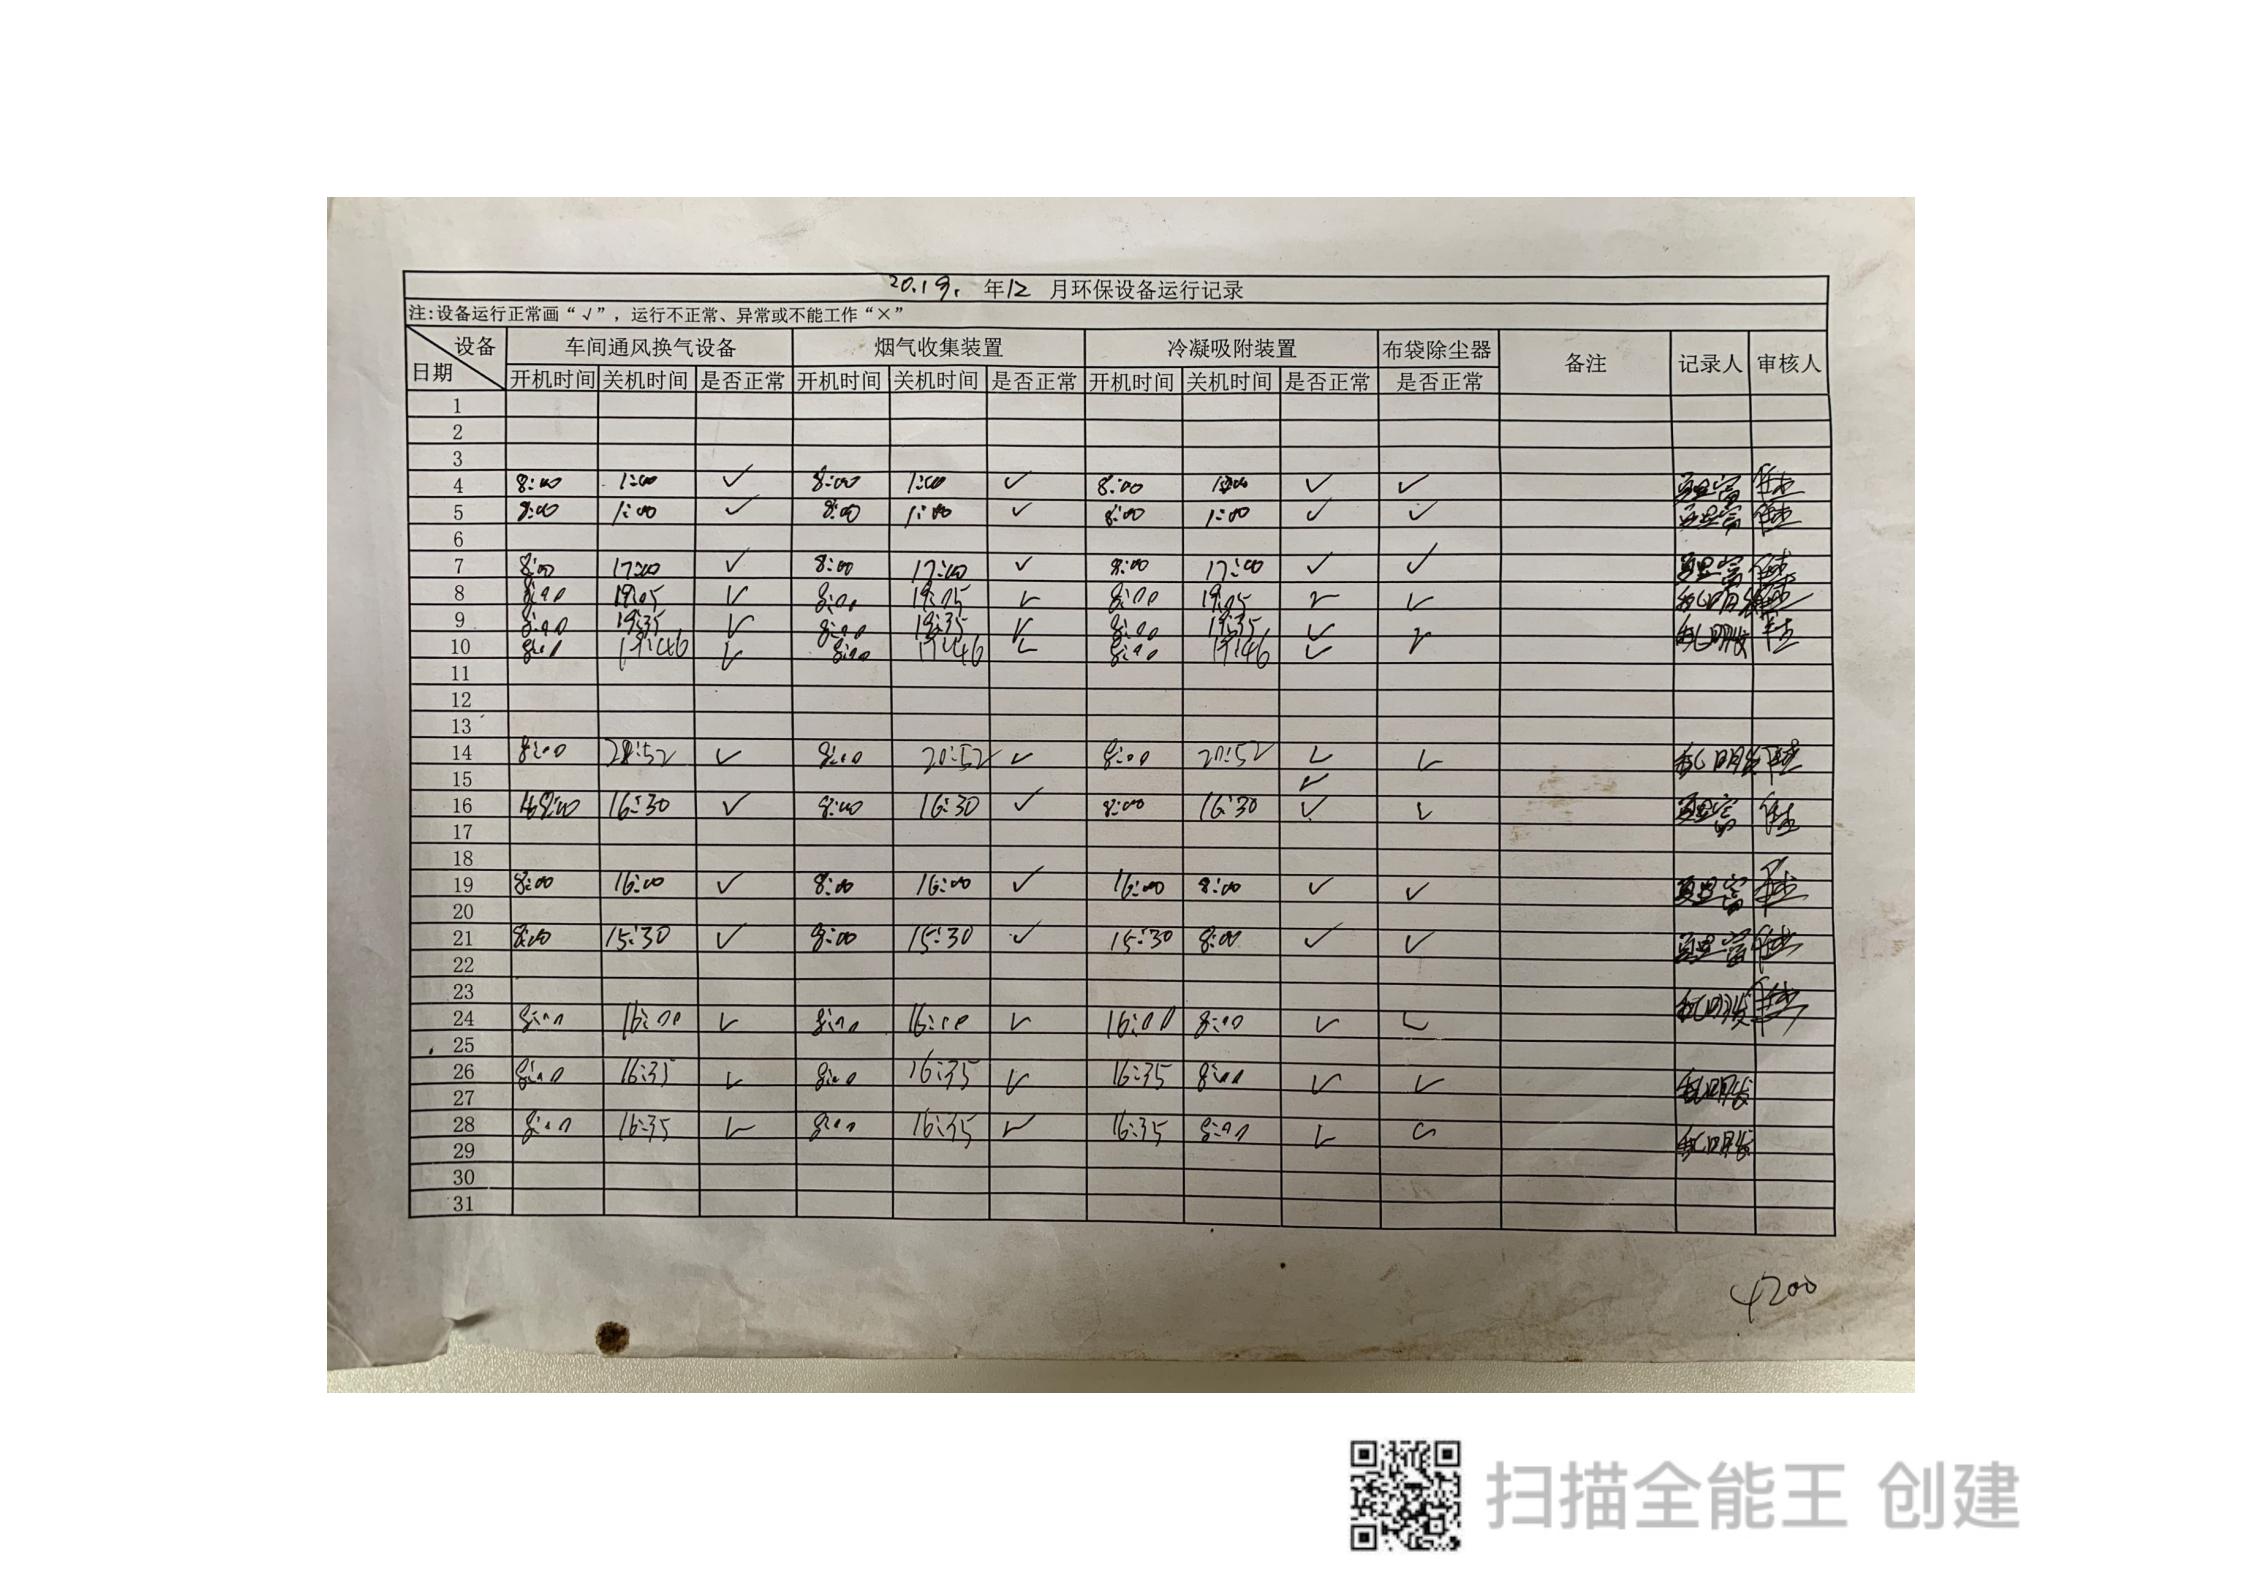 2019. 年12 月环保设备运行记录
注:设备运行正常画“√”，运行不正常、异常或不能工作“×”
设备 车间通风换气设备 烟气收集装置 冷凝吸附装置 布袋除尘器 备注 记录人 审核人
日期 开机时间 关机时间 是否正常 开机时间 关机时间 是否正常 开机时间 关机时间 是否正常 是否正常
1
2
3
4 8:00 1:00 ✓ 8:00 1:00 ✓ 8:00 1:00 ✓ ✓
5 8:00 1:00 ✓ 8:00 1:00 ✓ 8:00 1:00 ✓ ✓
6
7 8:00 17:00 ✓ 8:00 17:00 ✓ 8:00 17:00 ✓ ✓
8 8:00 19:05 ✓ 8:00 19:05 ✓ 8:00 19:05 ✓ ✓
9 8:00 19:35 ✓ 8:00 19:35 ✓ 8:00 19:35 ✓ ✓
10 8:00 19:46 ✓ 8:00 19:46 ✓ 8:00 19:46 ✓
11
12
13
14 8:00 20:52 ✓ 8:00 20:52 ✓ 8:00 20:52 ✓ ✓
15 ✓
16 8:00 16:30 ✓ 8:00 16:30 ✓ 8:00 16:30 ✓ ✓
17
18
19 8:00 16:00 ✓ 8:00 16:00 ✓ 16:00 8:00 ✓ ✓
20
21 8:00 15:30 ✓ 8:00 15:30 ✓ 15:30 8:00 ✓ ✓
22
23
24 8:00 16:00 ✓ 8:00 16:00 ✓ 16:00 8:00 ✓ ✓
25
26 8:00 16:35 ✓ 8:00 16:35 ✓ 16:35 8:00 ✓ ✓
27
28 8:00 16:35 ✓ 8:00 16:35 ✓ 16:35 8:00 ✓ ✓
29
30
31
4200
扫描全能王 创建